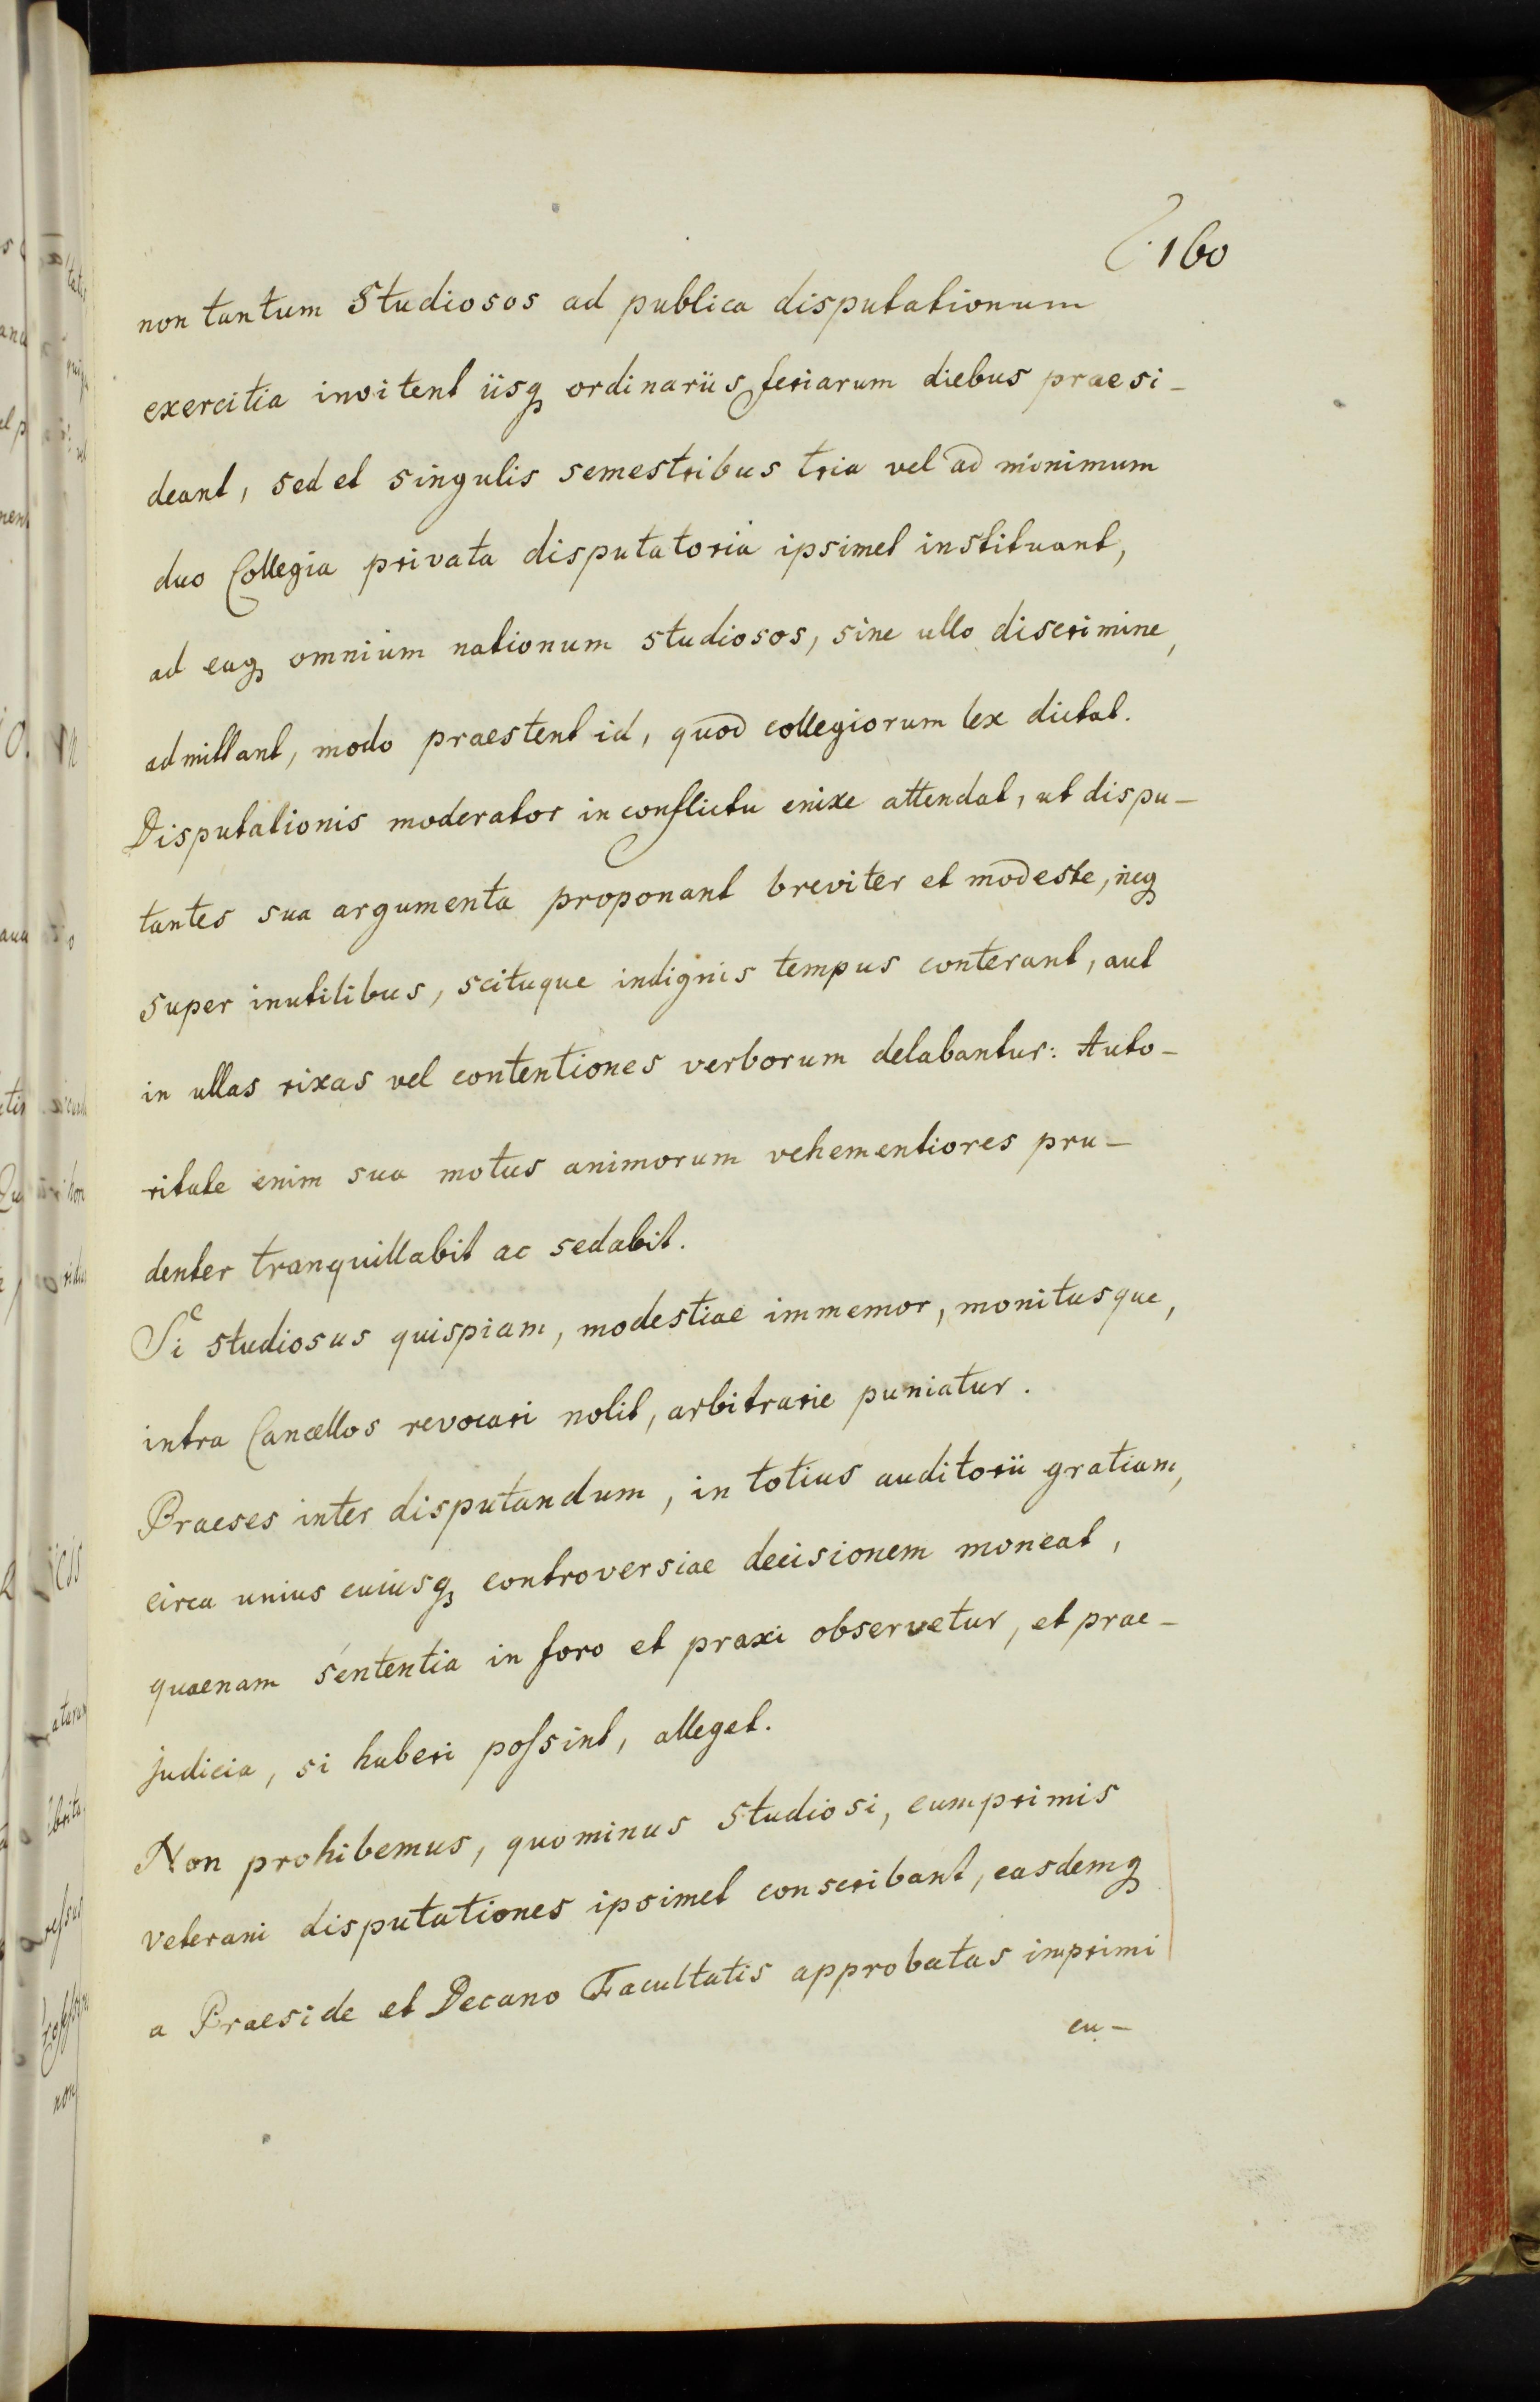 160
non tantum Studiosos ad publica disputationum
exercitia invitent iisq ordinariis feriarum diebus praesi-
deant, sed et singulis semestribus tria vel ad minimum
duo Collegia privata disputatoria ipsimet instituant,
ad eaq omnium nationum studiosos, sine ullo discrimine,
admittant, modo praestent id, quod collegiorum lex dictat.
Disputationis moderator in conflictu enixe attendat, ut dispu-
tantes sua argumenta proponant breviter et modeste, neq
super inutilibus, scituque indignis tempus conterant, aut
in ullas rixas vel contentiones verborum delabantur: Auto-
ritate enim sua motus animorum vehementiores pru-
denter tranquillabit ac sedabit.
Si studiosus quispiam, modestiae immemor, monitusque,
intra Cancellos revocari nolit, arbitrarie puniatur.
Praeses inter disputandum, in totius auditorii gratiam,
circa unius cuiusq controversiae decisionem moneat,
quaenam sententia in foro et praxi observetur, et prae-
judicia, si haberi possint, alleget.
Non prohibemus, quominus studiosi, cumprimis
veterani disputationes ipsimet conscribant, easdemq
a Praeside et Decano Facultatis approbatas imprimi
cu-